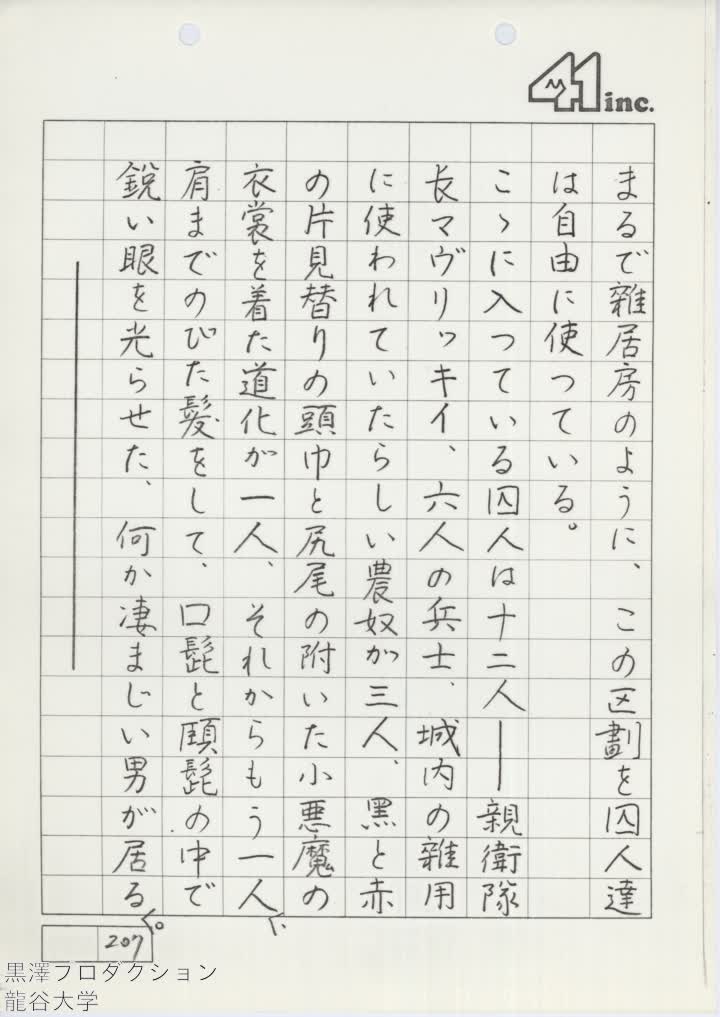 41 inc.
まるで雑居房のように、この区劃を囚人達
は自由に使つている。
こゝに入つている囚人は十二人――親衛隊
長マヴリッキイ、六人の兵士、城内の雑用
に使われていたらしい農奴が三人、黒と赤
の片見替りの頭巾と尻尾の附いた小悪魔の
衣裳を着た道化が一人、それからもう一人、
肩までのびた髪をして、口髭と頤髭の中で
鋭い眼を光らせた、何か凄まじい男が居る。
207
黒澤プロダクション
龍谷大学